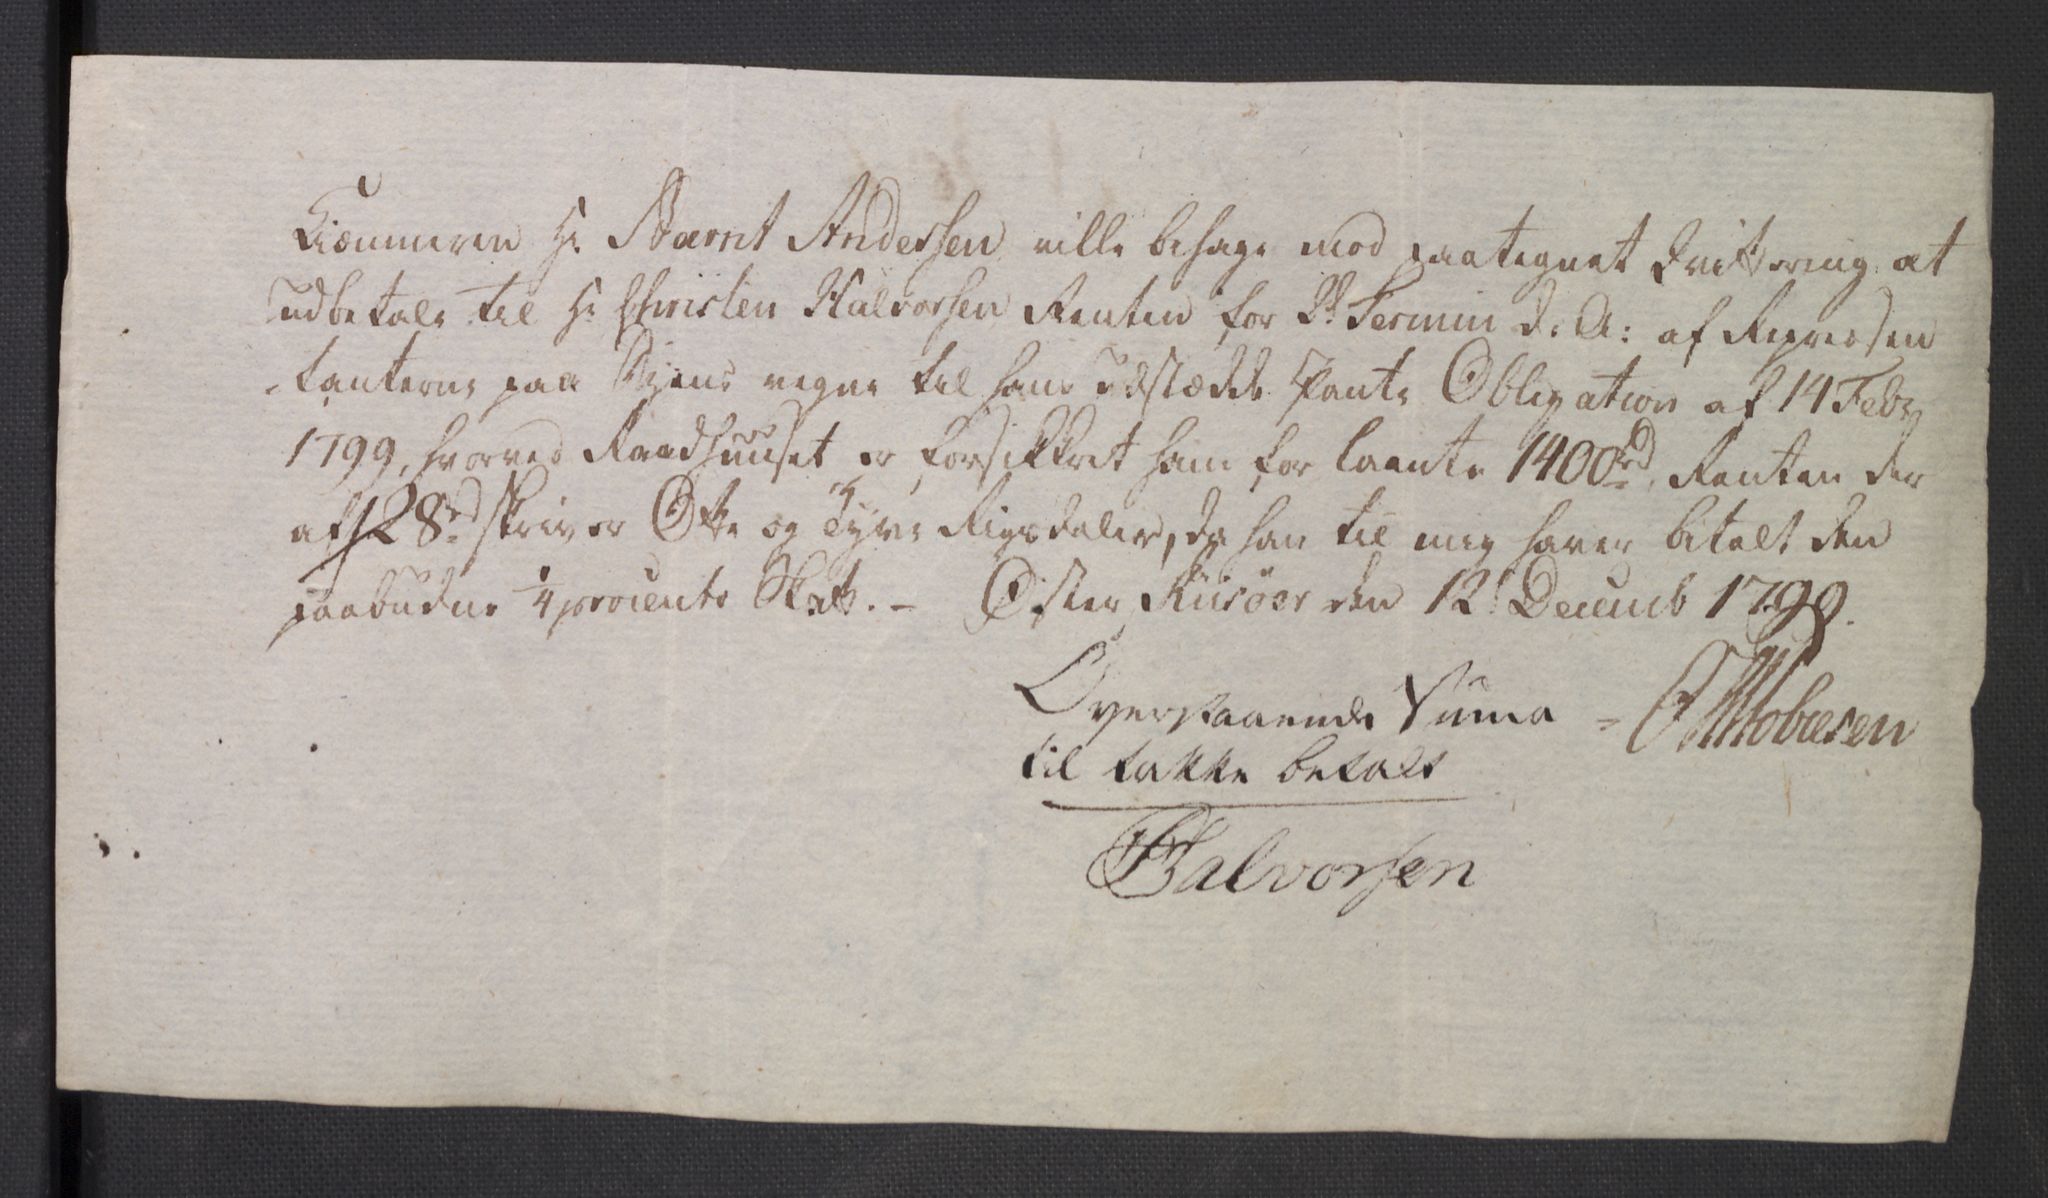 Kiæmneren Hr Barnt Andersen ville behage mod paategnet Qvittering at
udbetale til Hr Christen Halvorsen Renten for Termin d: A: af Repræsen
tanterne paa Byens vegne til ham udstædde Pante Obligation af 14 Febr
1799, hvorved Raadhuuset er forsikkret ham for laante 1400rd, Renten der
af 28rd skriver Otte og Tyve Rigsdaler, da han til mig haver betalt den
paabudne 1/4 procento Skatt. - Øster Riisöer den 12 Decemb 1799.
Overstaaende Suma -
til takke betalt
Halvorsen